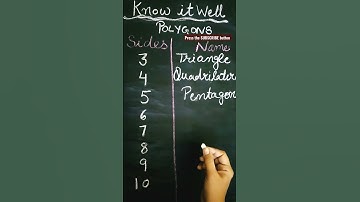 Know it Well
POLYGONS
Press the SUBSCRIBE button
Sides Name
3 Triangle
4 Quadrilater
5 Pentagon
6
7
8
9
10